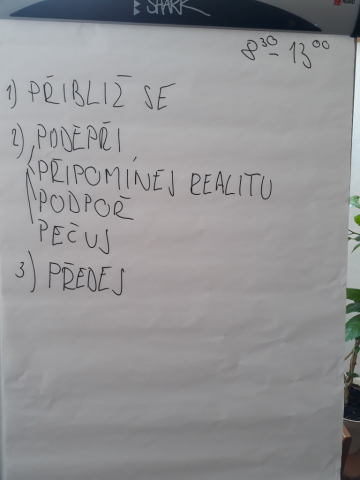 SHARK
8³⁰ - 13⁰⁰
1) PŘIBLIŽ SE
2) PODEPŘI
PŘIPOMÍNEJ REALITU
PODPOŘ
PEČUJ
3) PŘEDEJ